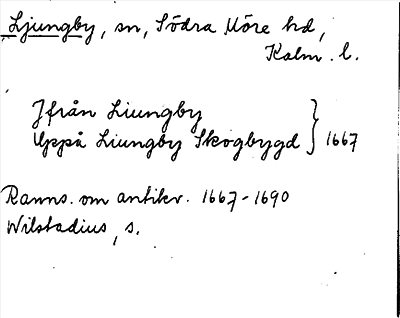 Ljungby, sn, Södra Möre hd,
Kalm. l.
Jfrån Liungby
Uppå Liungby Skogbygd } 1667
Ranns. om antikv. 1667-1690
Wilstadius, s.